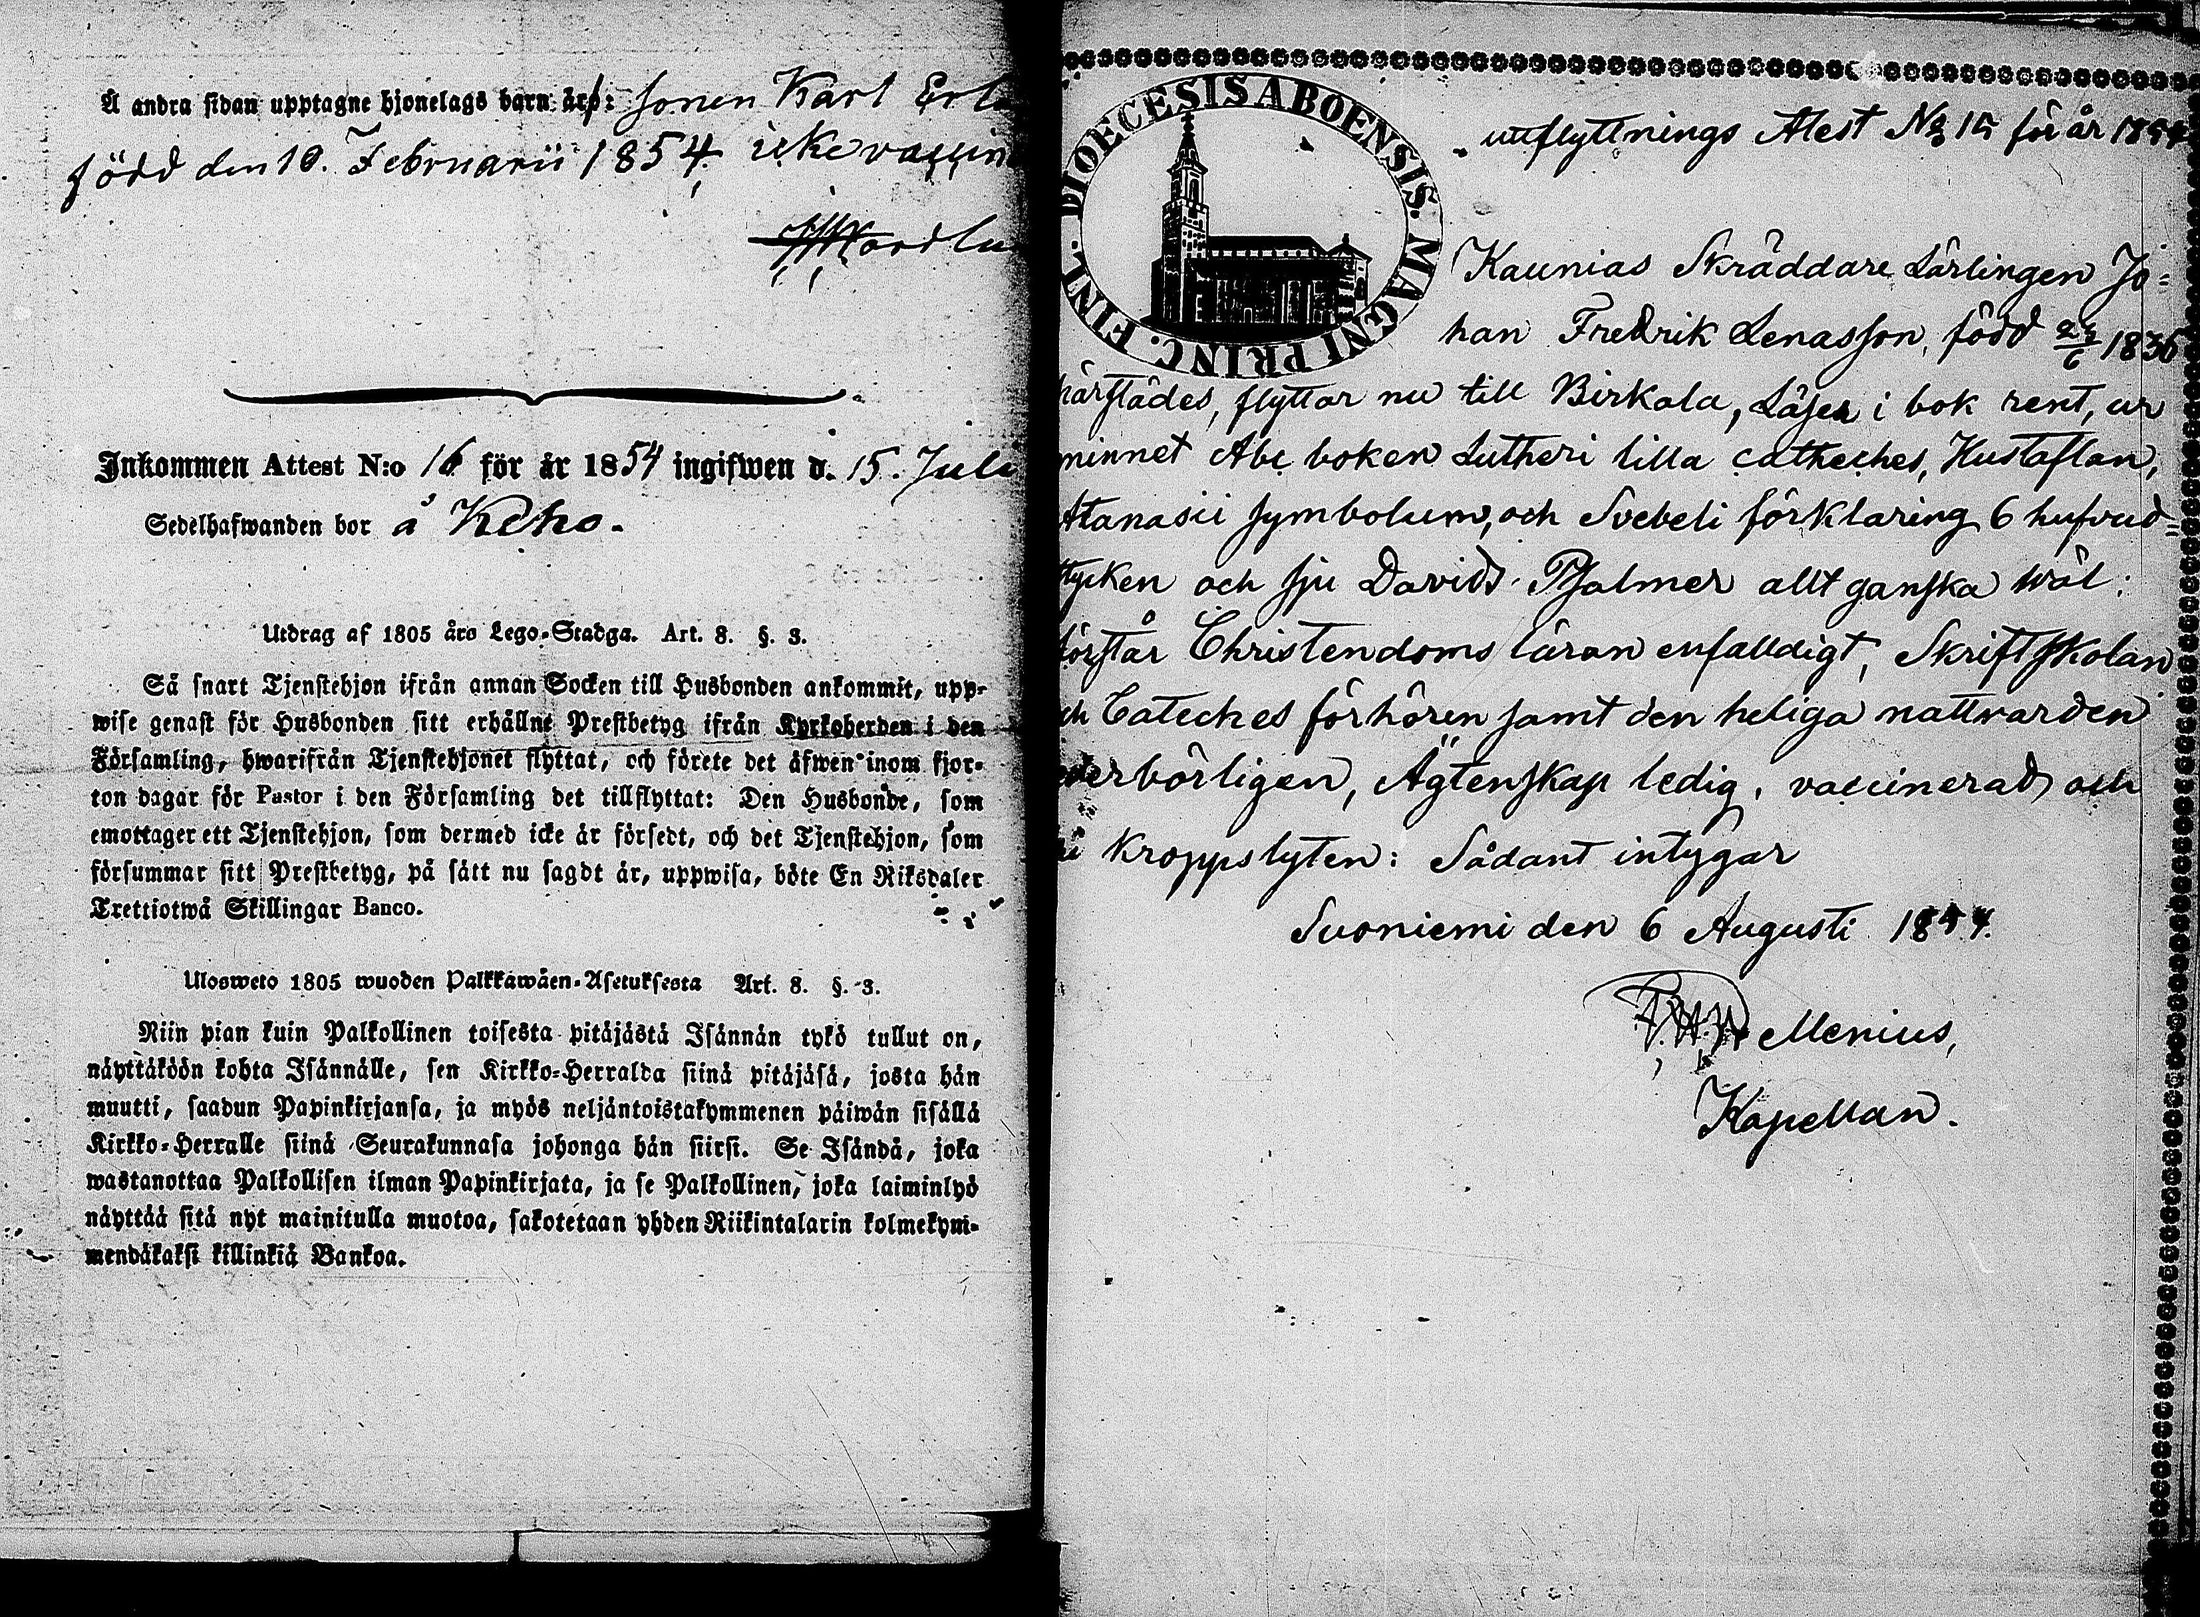 Å andra sidan upptagne hjonelags barn är: sonen Karl Erl
född den 10. Februarii 1854. icke vaccin
Inkommen Attest N:o 16 för år 1854 ingifwen d. 15. Juli
Sedelhafwanden bor å Keho.
Utdrag af 1805 års Lego-Stadga. Art. 8. §. 3.
Så snart Tjenstehjon ifrån annan Socken till Husbonden ankommit, upp-
wise genast för Husbonden sitt erhållne Prestbetyg ifrån Kyrkoherden i den
Församling, hwarifrån Tjenstehjonet flyttat, och förete det äfwen inom fjor-
ton dagar för Pastor i den Församling det tillflyttat: Den Husbonde, som
emottager ett Tjenstehjon, som dermed icke är försedt, och det Tjenstehjon, som
försummar sitt Prestbetyg, på sätt nu sagdt är, uppwisa, böte En Riksdaler
Trettiotwå Skillingar Banco.
Ulosweto 1805 wuoden Palkkawäen-Asetuksesta Art. 8. §. 3.
Niin pian kuin Palkollinen toisesta pitäjästä Isännän tykö tullut on,
näyttäköön kohta Isännälle, sen Kirkko-Herralda siinä pitäjäsä, josta hän
muutti, saadun Papinkirjansa, ja myös neljäntoistakymmenen päiwän sisällä
Kirkko-Herralle siinä Seurakunnasa johonga hän siirsi. Se Isändä, joka
wastanottaa Palkollisen ilman Papinkirjata, ja se Palkollinen, joka laiminlyö
näyttää sitä nyt mainitulla muotoa, sakotetaan yhden Riikintalarin kolmekym-
mendäkaksi killinkiä Bankoa.
DIOECESIS ABOENSIS. MAGNI PRINC. FINL.
utflyttnings Atest No 15 för år 1854
Kaunias Skräddare Lärlingen Jo=
han Fredrik Lenasson, född 1836
härstädes, flyttar nu till Birkala, Läser i bok rent, ur
minnet Abc boken Lutheri lilla catheches, Hustaflan,
Atanasii symbolum, och Svebeli förklaring 6 hufvud=
stycken och sju Davids Psalmer allt ganska wäl:
förstår Christendoms läran enfalldigt, Skriftskolan
och Cateches förhören samt den heliga nattvarden
ederbörligen, Ägtenskap ledig, vaccinerad och
kroppslyten: Sådant intygar
Suoniemi den 6 Augusti 1854.
Menius,
Kapellan.